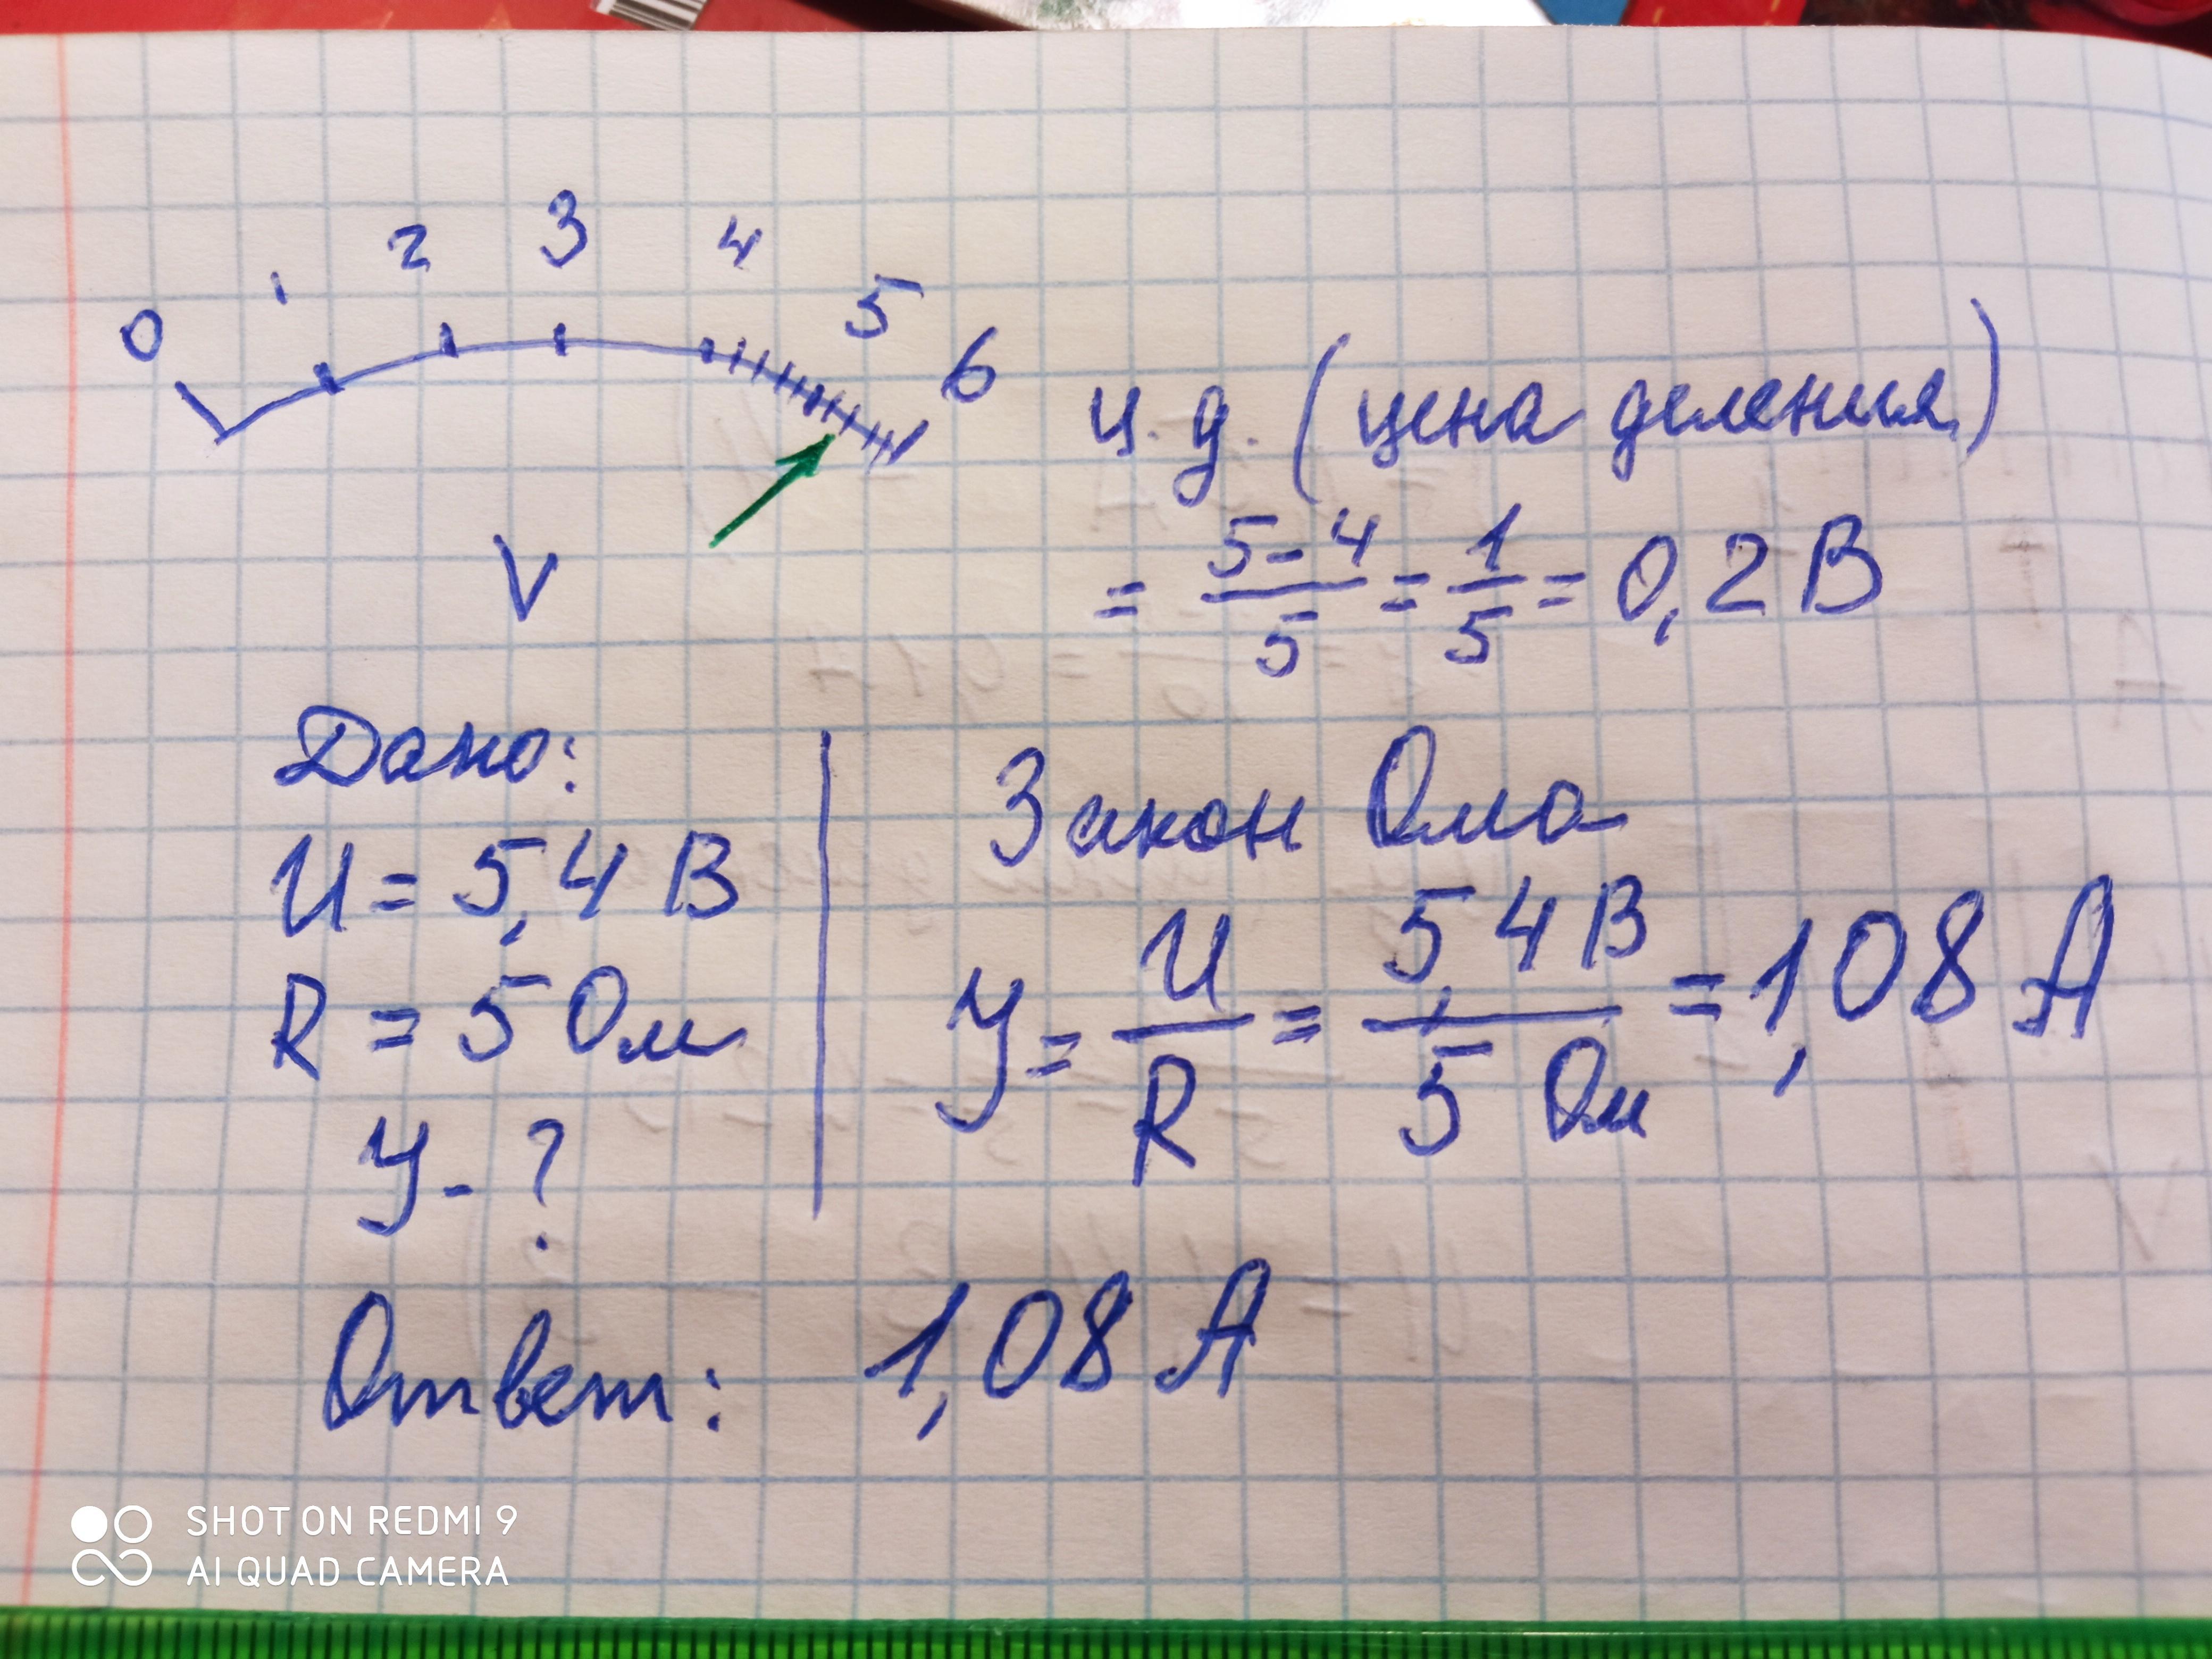 0 1 2 3 4 5 6
ц.д. (цена деления)
= 5-4/5 = 1/5 = 0,2 В
V
Дано:
U = 5,4 В
R = 5 Ом
У - ?
Закон Ома
У = U/R = 5,4 В/5 Ом = 1,08 А
Ответ: 1,08 А
SHOT ON REDMI 9
AI QUAD CAMERA